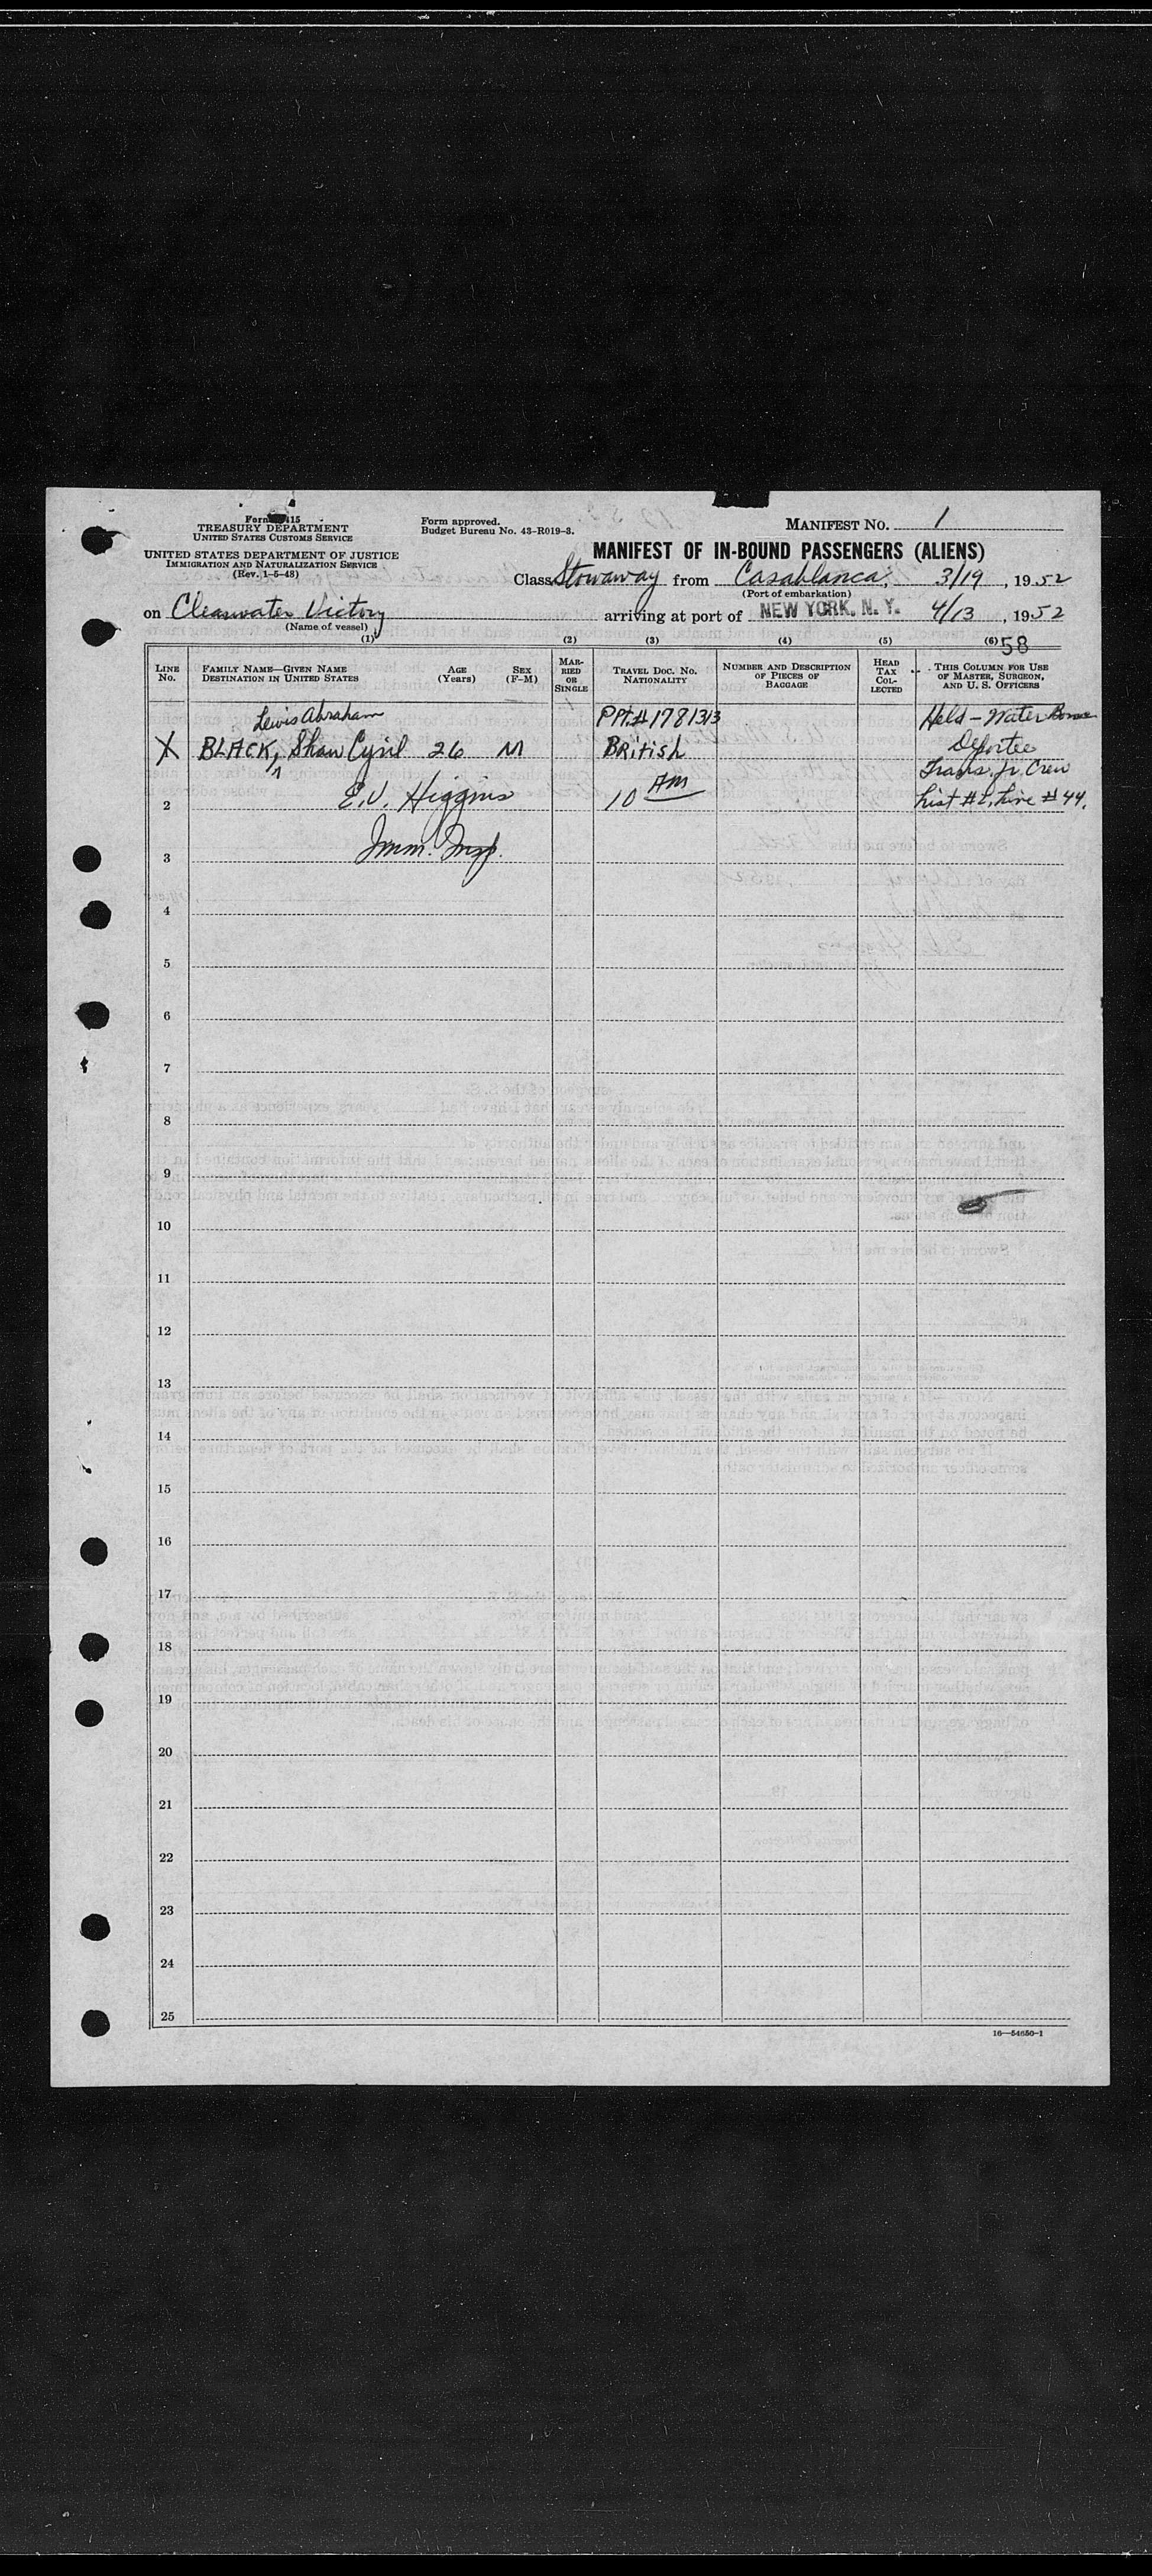 Form 415
TREASURY DEPARTMENT
UNITED STATES CUSTOMS SERVICE
UNITED STATES DEPARTMENT OF JUSTICE
IMMIGRATION AND NATURALIZATION SERVICE
(Rev. 1-5-48)
Form approved.
Budget Bureau No. 43-R019-3.
MANIFEST NO. 1
MANIFEST OF IN-BOUND PASSENGERS (ALIENS)
Class Stowaway from Casablanca, 3/19, 1952
(Port of embarkation)
on Clearwater Victory arriving at port of NEW YORK, N. Y. 4/13, 1952
(Name of vessel)
(1) (2) (3) (4) (5) (6) 58
LINE No. FAMILY NAME—GIVEN NAME DESTINATION IN UNITED STATES AGE (Years) SEX (F-M) MARRIED OR SINGLE TRAVEL DOC. NO. NATIONALITY NUMBER AND DESCRIPTION OF PIECES OF BAGGAGE HEAD TAX COLLECTED THIS COLUMN FOR USE OF MASTER, SURGEON, AND U. S. OFFICERS
Lewis Abraham PPt.# 1781313 Held - Water Borne
BLACK, Shaw Cyril 26 M British Deportee
Trans. fr. Crew
2 E.V. Higgins 10 AM List #1, Line #44.
3 Imm. Insp.
4
5
6
7
8
9
10
11
12
13
14
15
16
17
18
19
20
21
22
23
24
25
16—54650-1